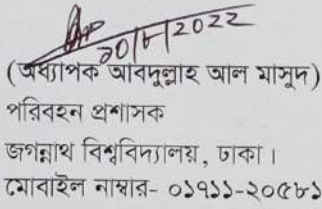 ২০/৮/2022
(অধ্যাপক আবদুল্লাহ আল মাসুদ)
পরিবহন প্রশাসক
জগন্নাথ বিশ্ববিদ্যালয়, ঢাকা।
মোবাইল নাম্বার- ০১৭১১-২০৫৮১